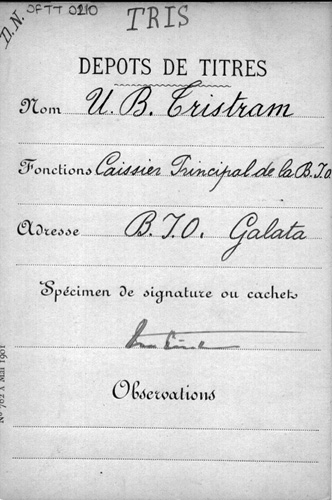 D.N. OFTT 0210
TRIS
DEPOTS DE TITRES
Nom U. B. Tristram
Fonctions Caissier Principal de la B.I.O.
Adresse B.I.O. Galata
Spécimen de signature ou cachets
Observations
No 762 x Mill 1901